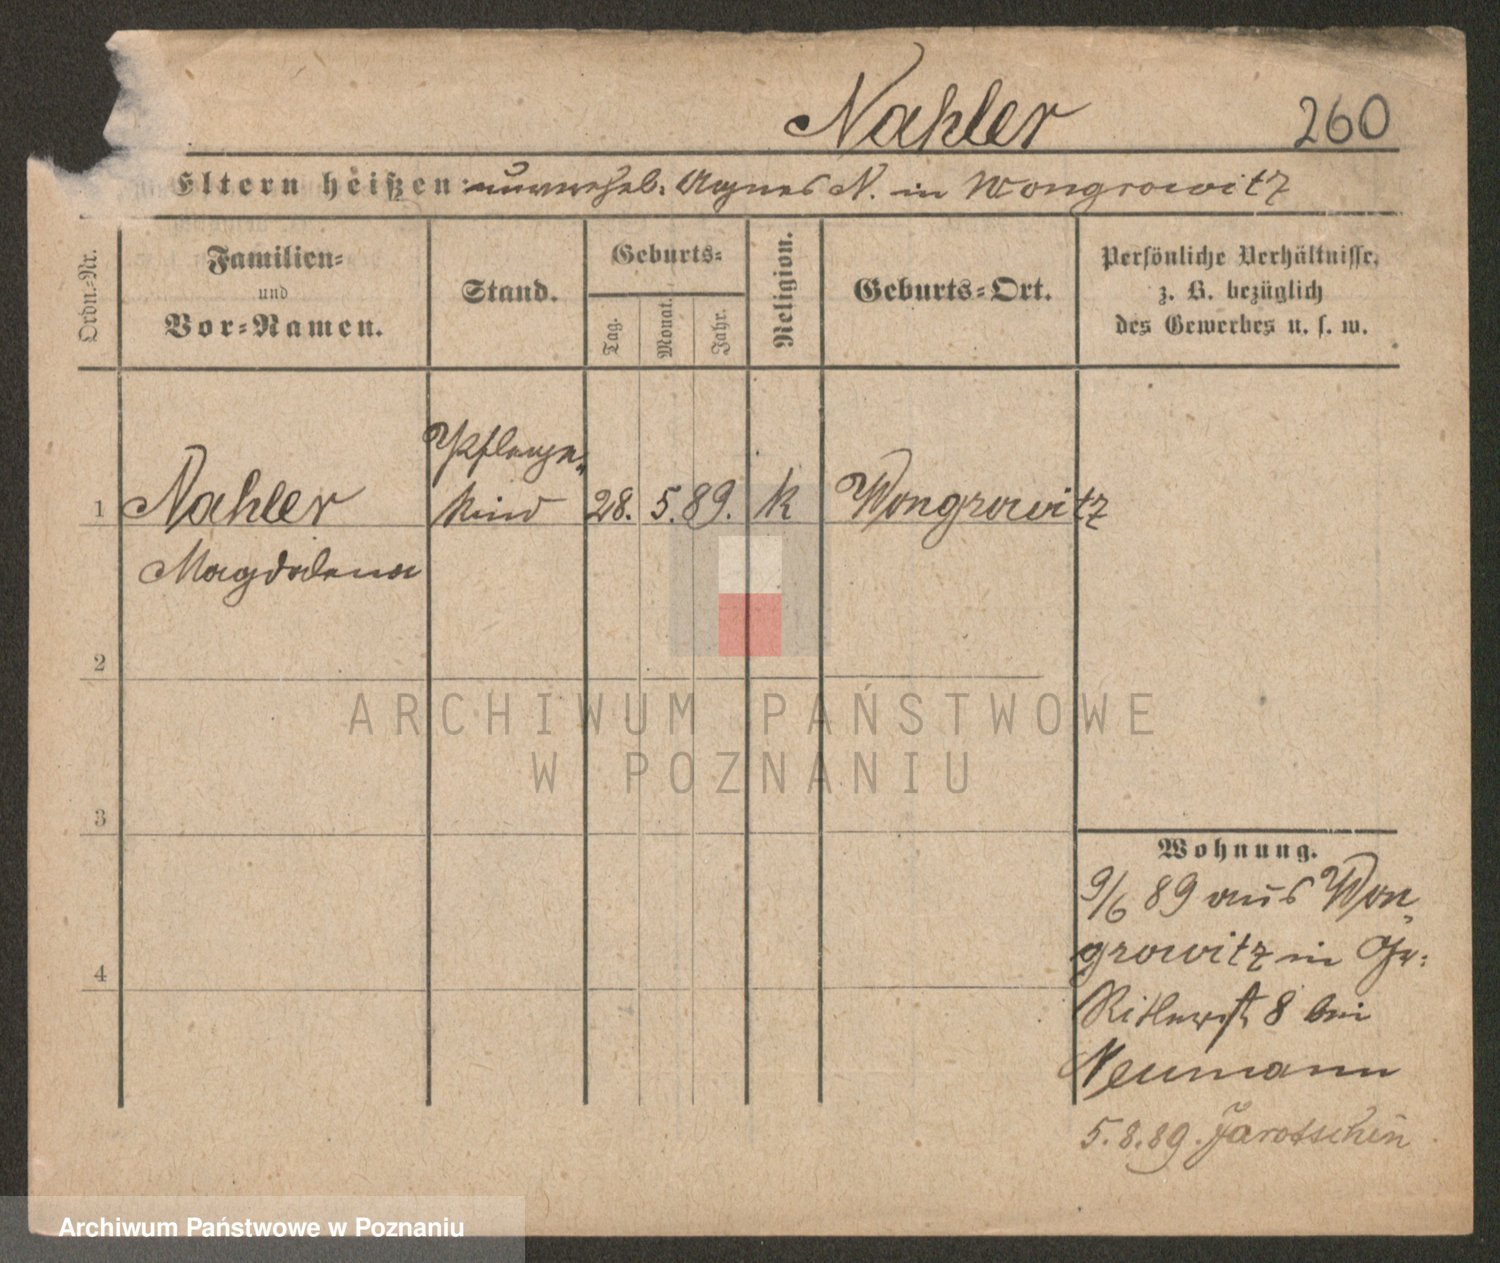 Nahler 260
Eltern heißen: unverehel. Agnes N. in Wongrowitz
Ordn.-Nr.
Familien-
und
Vor-Namen.
Stand.
Geburts-
Tag.
Monat.
Jahr.
Religion.
Geburts-Ort.
Persönliche Verhältnisse,
z. B. bezüglich
des Gewerbes u. s. w.
Pflege-
1 Nahler kind 28. 5. 89. k Wongrowitz
Magdalena
2
3
4
Wohnung.
9/6 89 aus Won-
growitz in Gr.
Ritterst 8 bei
Neumann
5.8.89. Jarotschin
ARCHIWUM PAŃSTWOWE
W POZNANIU
Archiwum Państwowe w Poznaniu